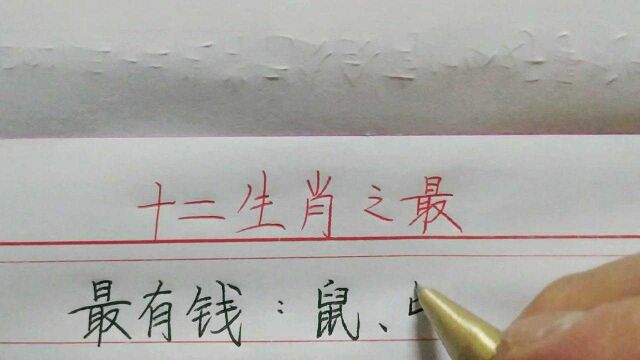 十二生肖之最
最有钱：鼠、